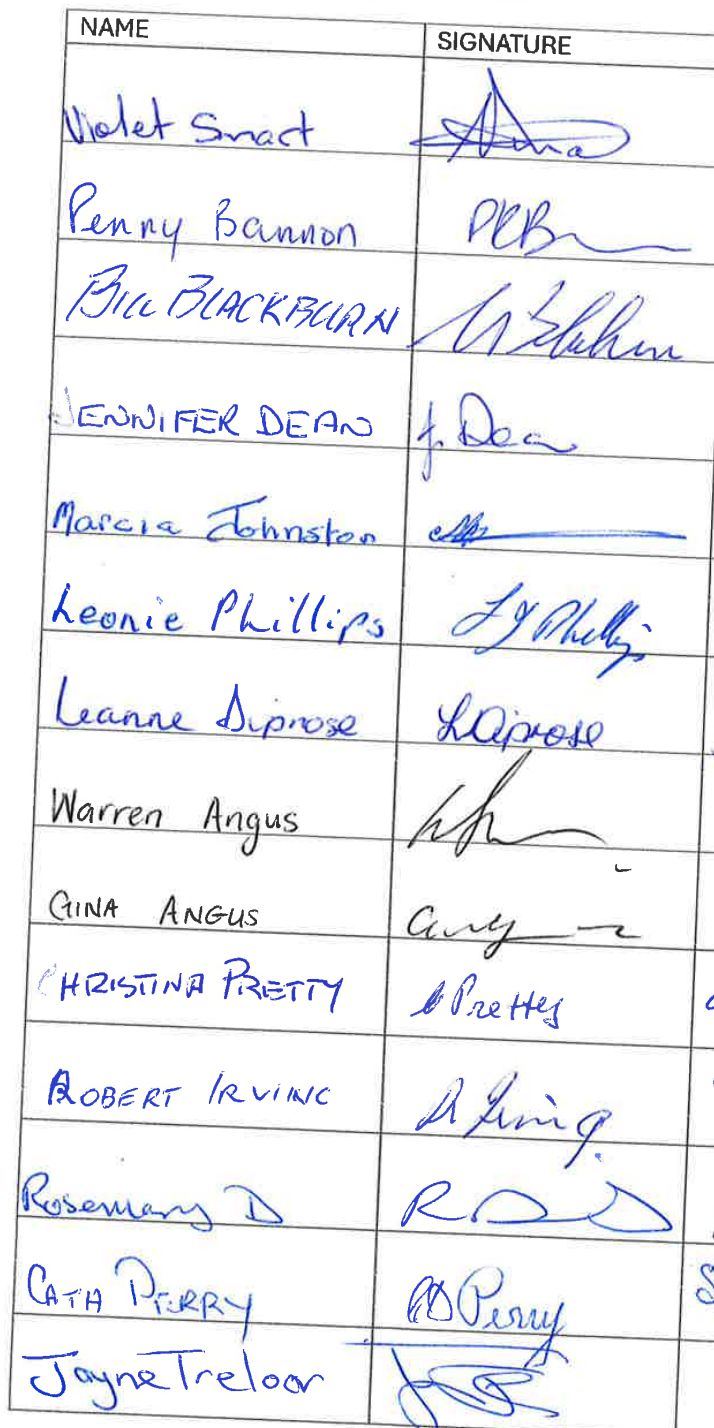 NAME SIGNATURE
Violet Smart
Penny Bannon PKB
BILL BLACKBURN
JENNIFER DEAN J. Dean
Marcia Johnston
Leonie Phillips LJ Phillips
Leanne Diprose LDiprose
Warren Angus
GINA ANGUS
CHRISTINA PRETTY C Pretty
ROBERT IRVING R Irving.
Rosemary D
CATH PERRY Perry
Jayne Treloar